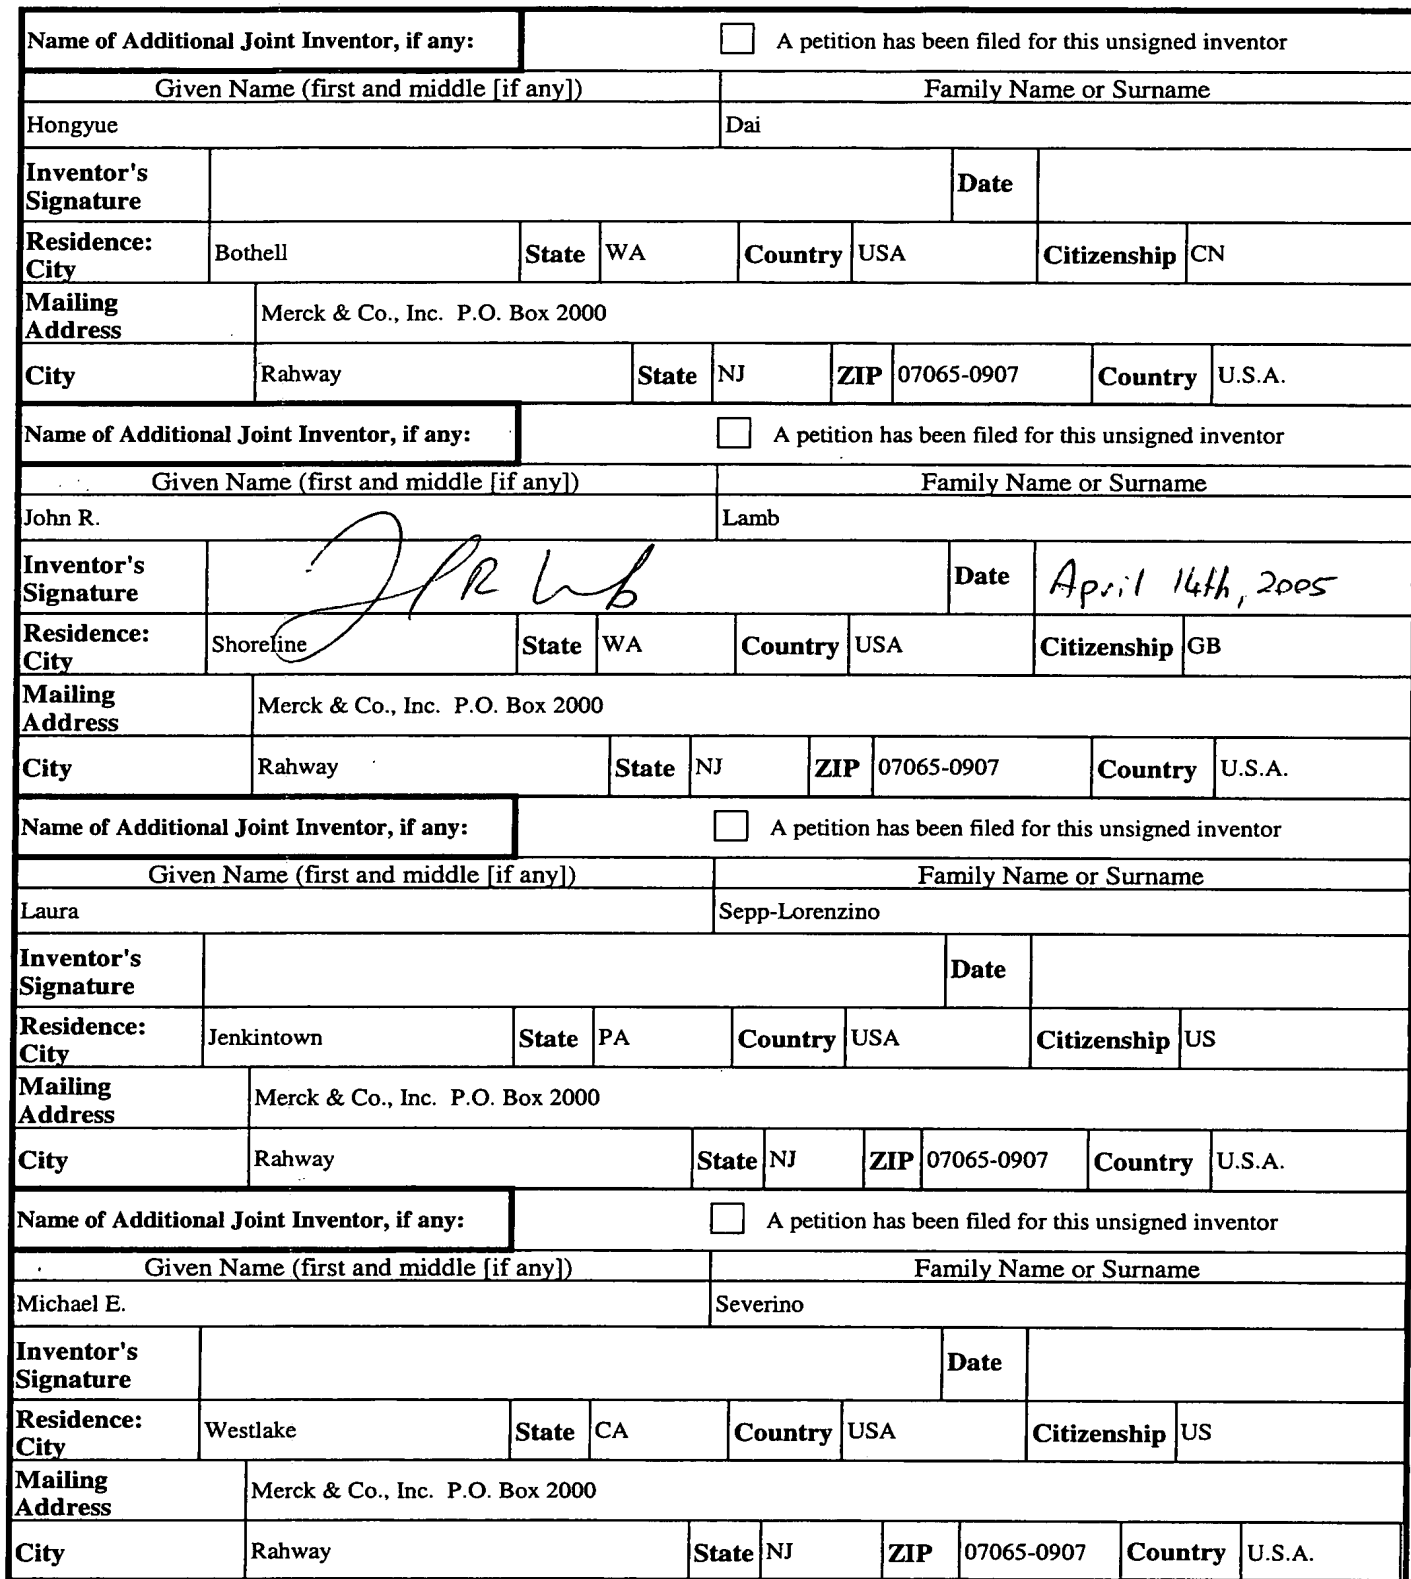 Name of Additional Joint Inventor, if any: A petition has been filed for this unsigned inventor
Given Name (first and middle [if any]) Family Name or Surname
Hongyue Dai
Inventor's Signature Date
Residence: City Bothell State WA Country USA Citizenship CN
Mailing Address Merck & Co., Inc. P.O. Box 2000
City Rahway State NJ ZIP 07065-0907 Country U.S.A.
Name of Additional Joint Inventor, if any: A petition has been filed for this unsigned inventor
Given Name (first and middle [if any]) Family Name or Surname
John R. Lamb
Inventor's Signature Date April 14th, 2005
Residence: City Shoreline State WA Country USA Citizenship GB
Mailing Address Merck & Co., Inc. P.O. Box 2000
City Rahway State NJ ZIP 07065-0907 Country U.S.A.
Name of Additional Joint Inventor, if any: A petition has been filed for this unsigned inventor
Given Name (first and middle [if any]) Family Name or Surname
Laura Sepp-Lorenzino
Inventor's Signature Date
Residence: City Jenkintown State PA Country USA Citizenship US
Mailing Address Merck & Co., Inc. P.O. Box 2000
City Rahway State NJ ZIP 07065-0907 Country U.S.A.
Name of Additional Joint Inventor, if any: A petition has been filed for this unsigned inventor
Given Name (first and middle [if any]) Family Name or Surname
Michael E. Severino
Inventor's Signature Date
Residence: City Westlake State CA Country USA Citizenship US
Mailing Address Merck & Co., Inc. P.O. Box 2000
City Rahway State NJ ZIP 07065-0907 Country U.S.A.